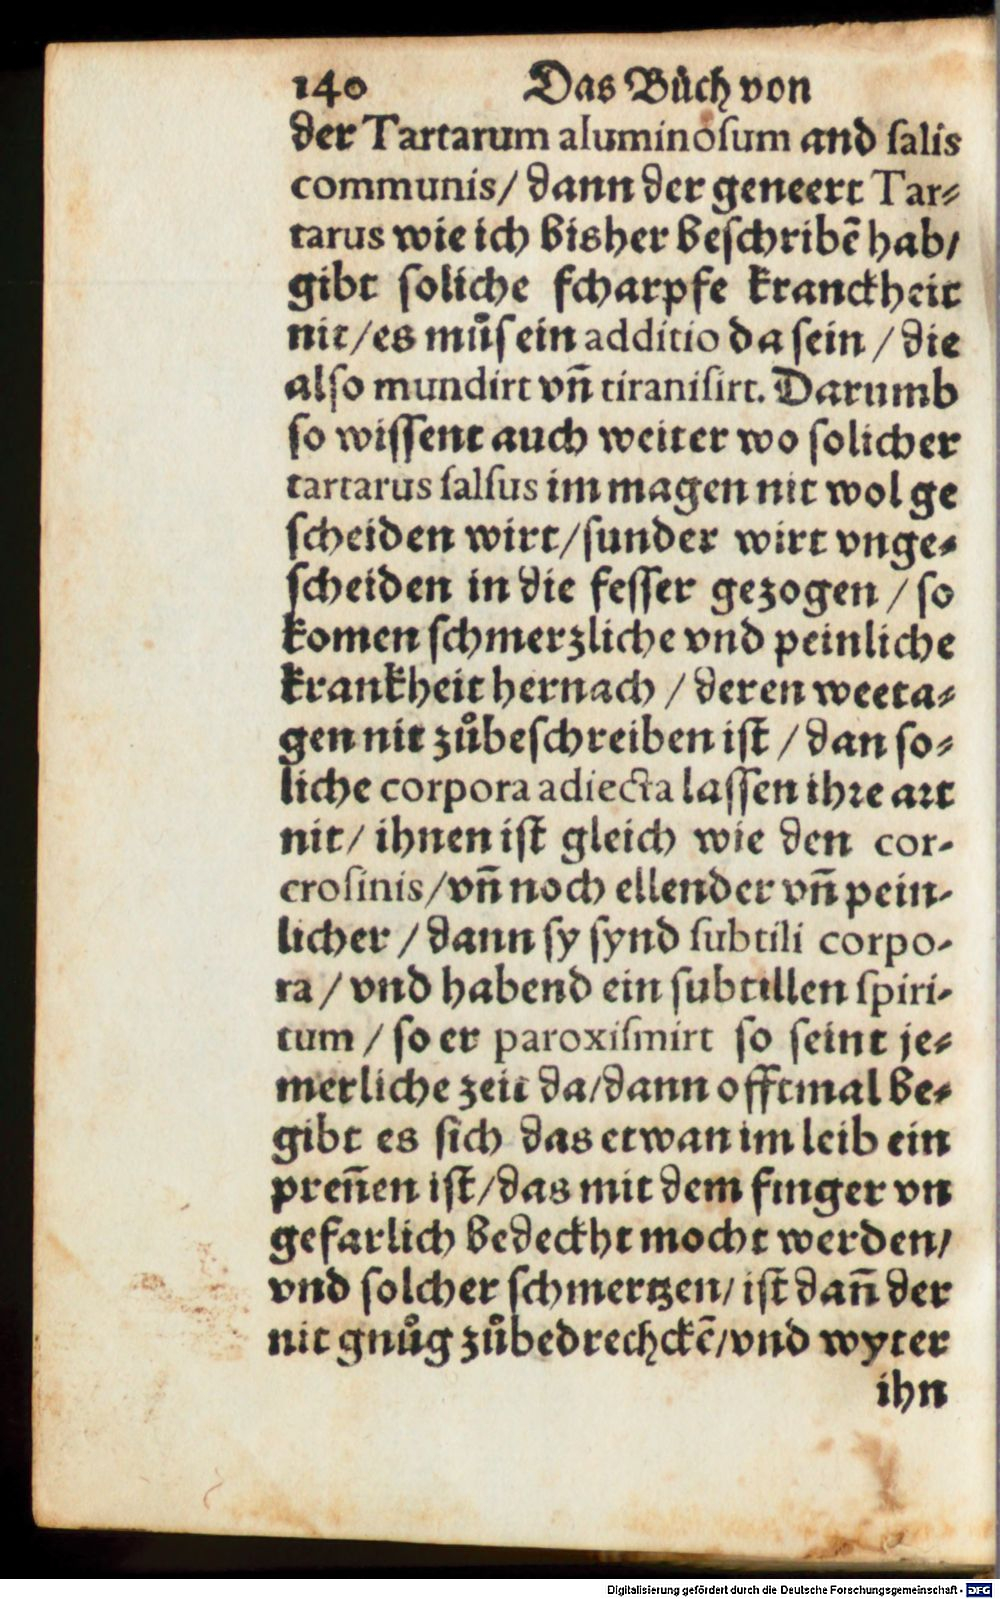 140 Das Bůch von
der Tartarum aluminosum and salis
communis/ dann der geneert Tar⸗
tarus wie ich bisher beschribẽ hab/
gibt soliche scharpfe kranckheit
nit/es můs ein additio da sein / die
also mundirt vñ tiranisirt. Darumb
so wissent auch weiter wo solicher
tartarus salsus im magen nit wol ge
scheiden wirt/sunder wirt vnge⸗
scheiden in die fesser gezogen / so
komen schmerzliche vnd peinliche
krankheit hernach / deren weeta⸗
gen nit zůbeschreiben ist / dan so⸗
liche corpora adiecta lassen ihre art
nit/ ihnen ist gleich wie den cor-
crosinis/vñ noch ellender vñ pein-
licher / dann sy synd subtili corpo-
ra / vnd habend ein subtillen spiri-
tum / so er paroxismirt so seint je⸗
merliche zeit da/dann offtmal be⸗
gibt es sich das etwan im leib ein
preñen ist/das mit dem finger vn
gefarlich bedeckht mocht werden/
vnd solcher schmertzen/ ist dañ der
nit gnůg zůbedrechckẽ/vnd wyter
ihn
Digitalisierung gefördert durch die Deutsche Forschungsgemeinschaft - DFG